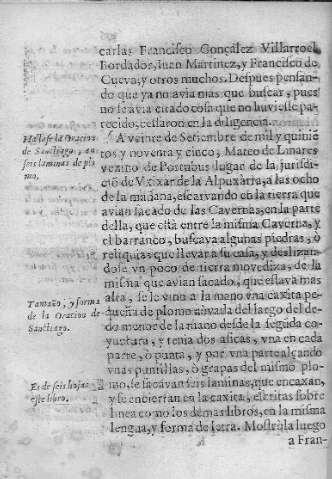 carlas Francisco Gonçalez Villarroel
Bordador, Iuan Martinez, y Francisco de
Cueva, y otros muchos. Despues pensan-
do que ya no avia mas que buscar, pues
no se avia citado cosa que no huviesse pa-
recido, cessaron en la diligencia.
Hallase la Oracion
de Sanctiago, en
seis laminas de plo
mo,
A veinte de Setiembre de mil y quiniē
tos y noventa y cinco, Mateo de Linares
vezino de lugar de la jurisdi-
ció de Vxixar de la Alpuxarra, a las ocho
de la mañana, escarvando en la tierra que
avian sacado de las Cavernas, en la parte
della, que está entre la misma Caverna, y
el barranco, buscava algunas piedras, ò
reliquias que llevar a su casa, y deslizan-
dose vn poco de tierra movediza, de la
misma que avian sacado, que estava mas
alta, se le vino a la mano vna caxita pe-
Tamaño, y forma
de la Oracion de
Sanctiago.
queña de plomo aovada del largo del de-
do menor de la mano desde la segūda co-
yuntura, y tenia dos asicas, vna en cada
parte, ò punta, y por vna parte alçando
vnas puntillas, ò grapas del mismo plo-
Es de seis hojas
este libro.
mo, se sacavan seis laminas, que encaxan,
y se encierran en la caxita, escritas sobre
linea como los demas libros, en la misma
lengua, y forma de letra. Mostròla luego
a Fran-